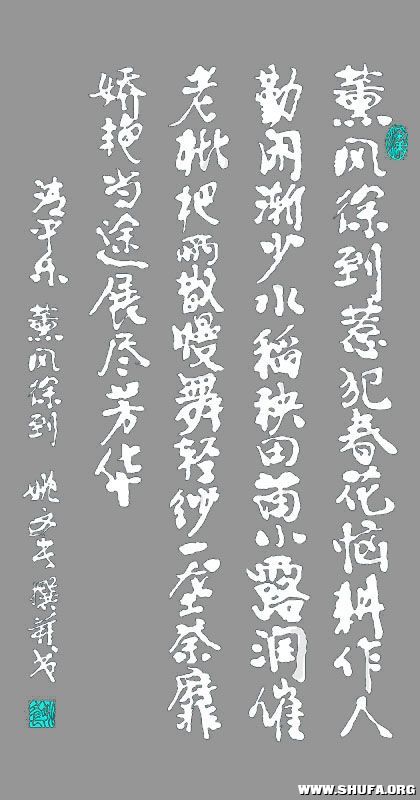 薰风徐到惹犯春花恼耕作人
勤闲渐少水稻秧田苗小露润催
老枇杷雨散慢舞轻纱一垄荼靡
娇艳当途展尽芳华
清平乐 薰风徐到 姚文 撰并书
WWW.SHUFA.ORG